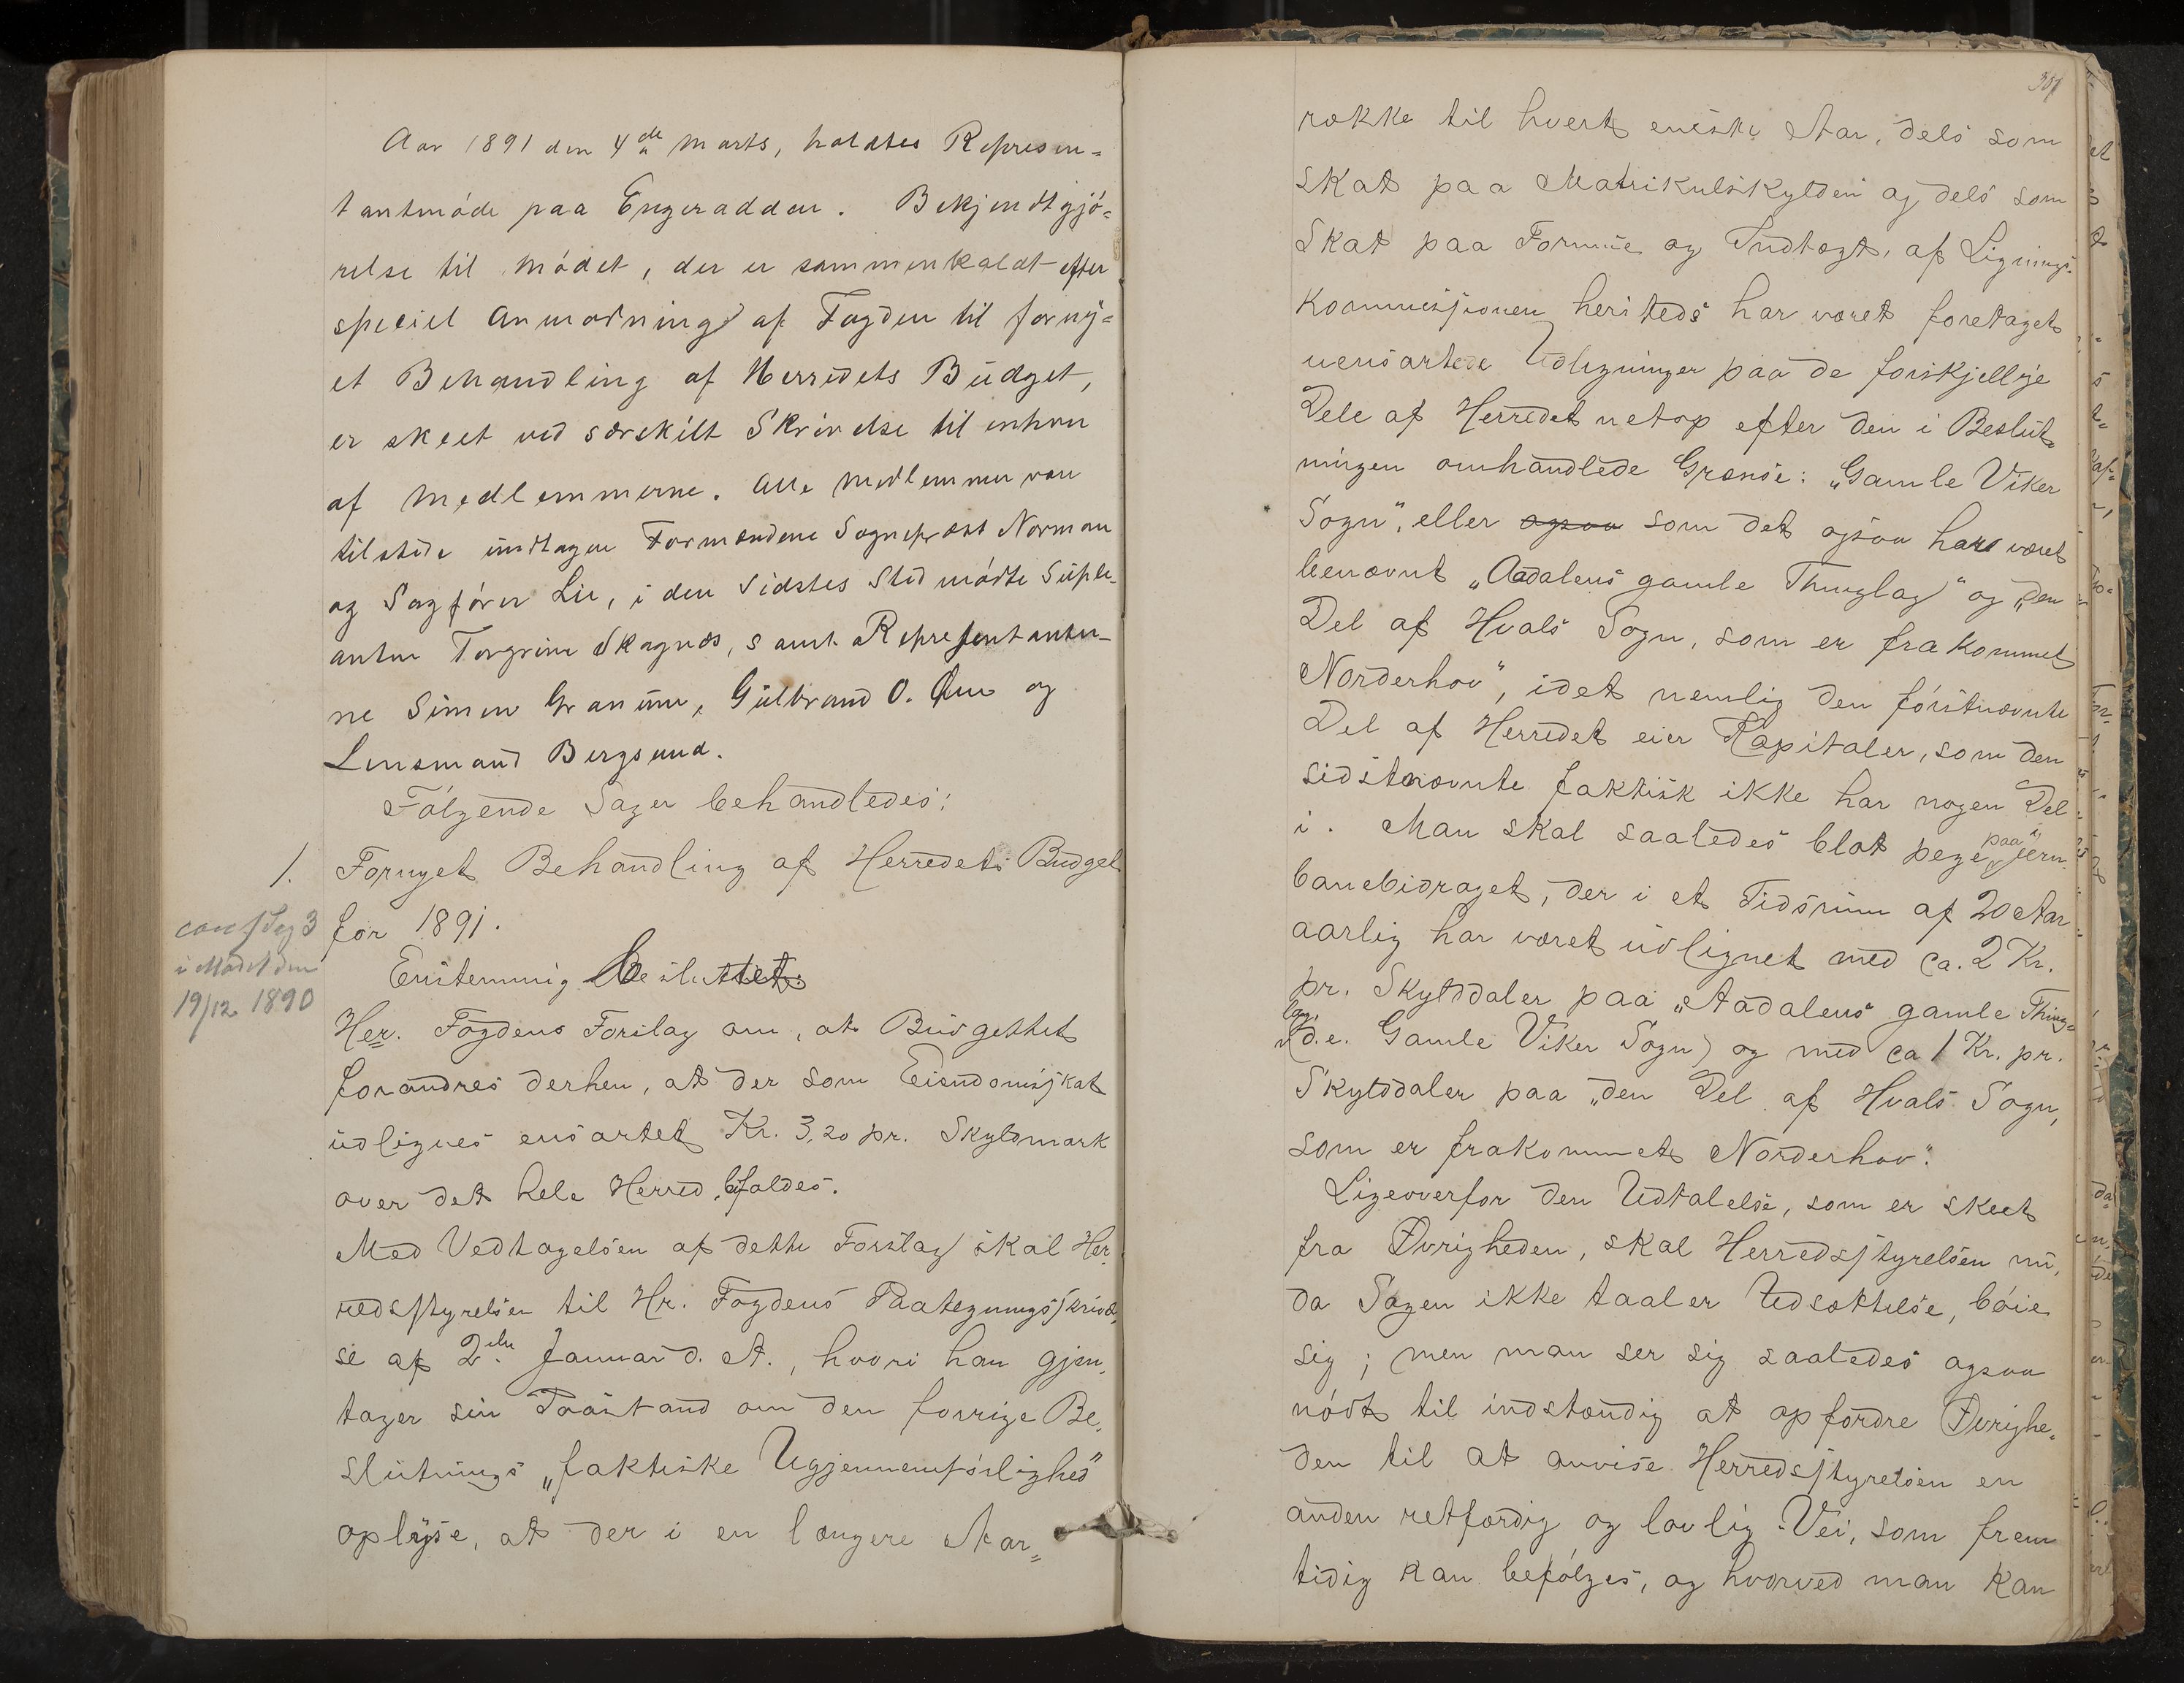 Aar 1891 den 4de Marts, holdtes Represen=
tantmøde paa Engeradden. Bekjendtgjø=
relse til Mødet, der er sammenkaldt efter
speciel Anmodning af Fogden til forny=
et Behandling af Herredets Budget,
er skeet ved særskilt Skrivelse til enhver
af Medlemmerne. Alle Medlemmer var
tilstede undtagen Formændene Sogneprest Norman
og Sagfører Lie, i den Sidstes Sted mødte Suple-
anten Torgrim Skagnæs, samt Representanter-
ne Simen Granum, Gulbrand O. 
Lensmand Bergsund.
Følgende Sager behandledes:
1. Fornyet Behandling af Herredets Budget
for 1891.
conf Sag 3
i Mødet den
19/12 1890
Enstemmig Besluttet:
Her. Fogdens Forslag om, at Budgettet
forandres derhen, at der som Eiendomsskat
udlignes ensartet Kr. 3,20 pr. Skyldmark
over det hele Herred, bifaldes.
Med Vedtagelsen af dette Forslag skal Her-
redsstyrelsen til Hr. Fogdens Paategningsskrivel-
se af 2den Januar d. A., hvori han gjen-
tager sin Paastand om den forrige Be-
slutnings „faktiske Ugjennemførlighed"
oplyse, at der i en længere Aar=
387
række til hvert eneste Aar, dels som
Skat paa Matrikulskylden og dels som
Skat paa Formue og Indtægt, af Lignings-
kommissionen hersteds har været foretaget
uensartede Udligninger paa de forskjellige
Dele af Herredet netop efter den i Beslut-
ningen omhandlede Grænse: „Gamle Viker
Sogn", eller ogsaa som det ogsaa har været
benævnt „Aadalens gamle Thinglag" og „den
Del af Hvals Sogn, som er frakommet
Norderhov", idet nemlig den førstnævnte
Del af Herredet eier Kapitaler, som den
sidstnævnte faktisk ikke har nogen Del
i. Man skal saaledes blot pege paa Jern-
banebidraget, der i et Tidsrum af 20 Aar
aarlig har været udlignet med ca. 2 Kr.
pr. Skylddaler paa „Aadalens gamle Thing-
lag" (d.e. Gamle Viker Sogn) og med ca 1 Kr. pr.
Skylddaler paa „den Del af Hvals Sogn,
som er frakommet Norderhov".
Ligeoverfor den Udtalelse, som er skeet
fra Øvrigheden, skal Herredsstyrelsen nu,
da Sagen ikke taaler Udsættelse, bøie
sig; men man ser sig saaledes ogsaa
nødt til indstændig at opfordre Øvrighe-
den til at anvise Herredsstyrelsen en
anden retfærdig og lovlig Vei, som frem-
tidig kan befølges, og hvorved man kan